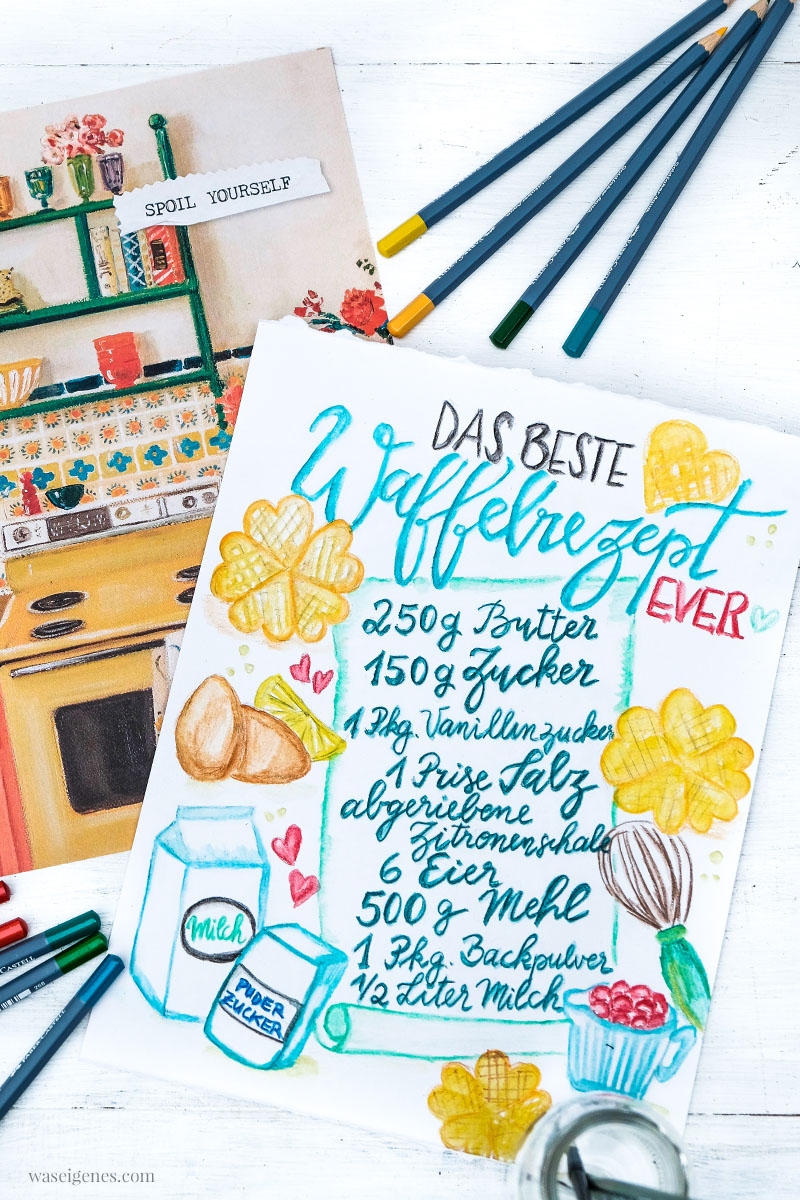 SPOIL YOURSELF
DAS BESTE
Waffelrezept
EVER
250g Butter
150g Zucker
1 Pkg. Vanillinzucker
1 Prise Salz
abgeriebene
Zitronenschale
6 Eier
500g Mehl
1 Pkg. Backpulver
1/2 Liter Milch
Milch
PUDER
ZUCKER
waseigenes.com